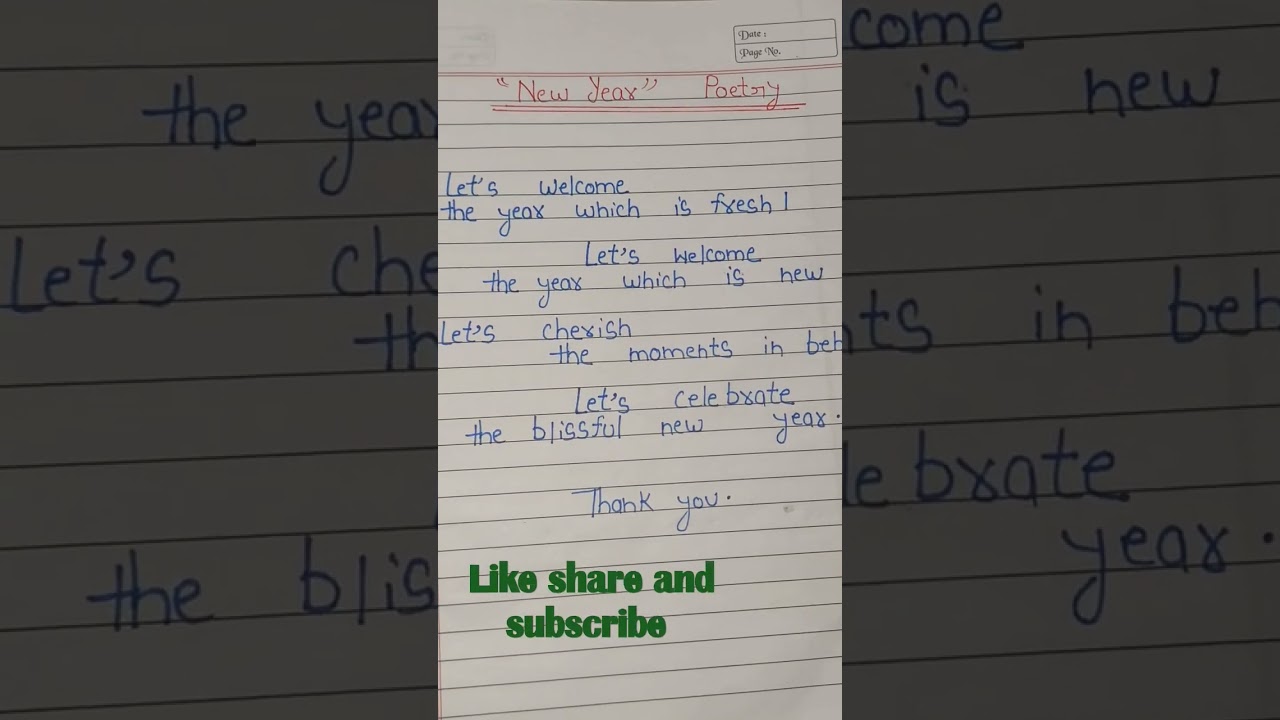 Date :
Page No.
"New Year" Poetry
Let's welcome
the year which is fresh!
Let's welcome
the year which is new
Let's cherish
the moments in beh
Let's celebrate
the blissful new year.
Thank you.
Like share and
subscribe